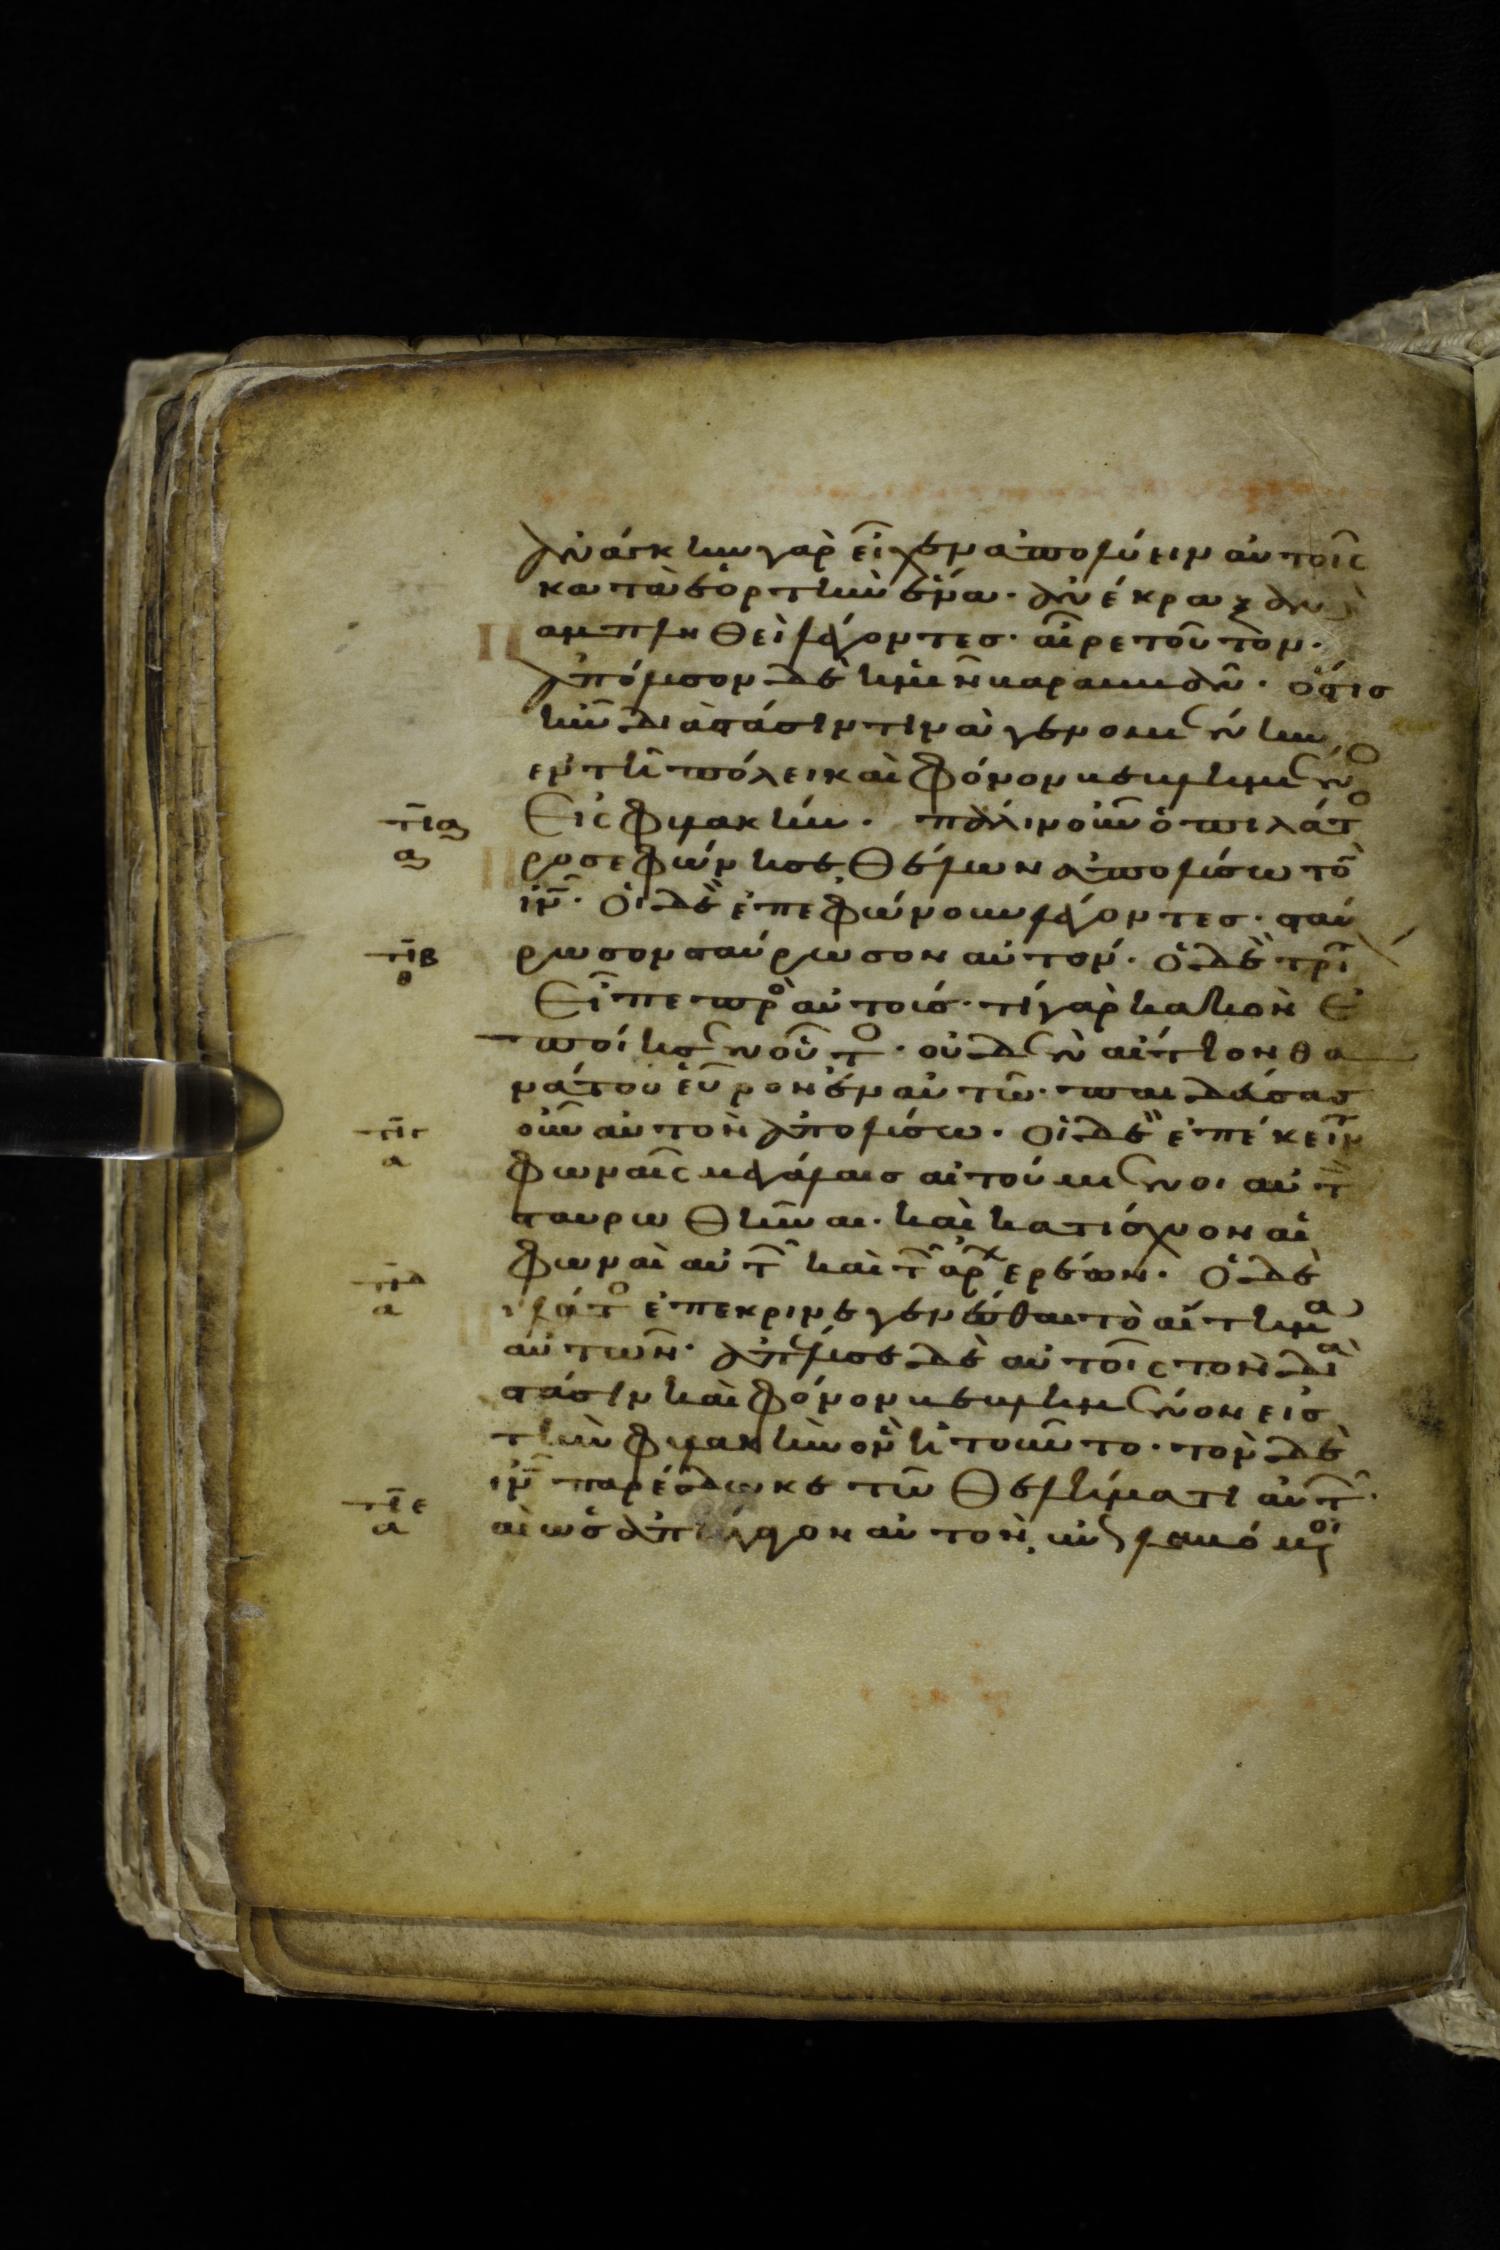 ἀνάγκην γὰρ εἶχεν ἀπολύειν αὐτοῖς
κατὰ ἑορτὴν ἕνα· ἀνέκραξαν δὲ
αμπληθεὶ λέγοντες· αἶρε τοῦτον·
ἀπόλυσον δὲ ἡμῖν βαραββᾶν· ὅστις
ἦν διὰ στάσιν τινὰ γενομένην
ἐν τῆ πόλει καὶ φόνον βεβλημένο
Εἰς φυλακήν· πάλιν οὖν ὁ πιλάτο
ροσεφώνησε, θέλων ἀπολύσω τὸ
ιν· Οἱ δὲ ἐπεφώνουν λέγοντες· σταύ
ρωσον σταύρωσον αὐτόν· ὁ δὲ τρί
Εἶπε πρὸ αὐτοίς· τί γὰρ κακὸν ἐ
ποίησεν οὗτο· οὐδὲν αἴτιον θα
νάτου εὗρον ἐν αὐτῶ· παιδεύσας
οὖν αὐτὸν ἀπολύσω. Οἱ δὲ ἐπέκειν
φωναῖς μεγάλαις αἰτούμενοι αὐτ
σταυρωθῆναι· καὶ κατίσχυον αἱ
φωναὶ αὐτ καὶ τ ἀρχερέων· Ὁ δὲ
ιλάτο ἐπέκρινε γενέσθαι τὸ αἴτημα
αὐτῶν· ἀπέλυσε δὲ αὐτοῖς τὸν δια
στάσιν καὶ φόνον βεβλημένον εἰς
τὴν φυλακὴν ὃν ἠτοῦντο· τὸν δὲ
ιν παρέδωκε τῶ θελήματι αὐτ·
αὶ ὡς ἀπήγαγον αὐτὸν, ἐπιλαβόμενοι
τια
α
τιβ
θ
τιγ
α
τιδ
α
τιε
α